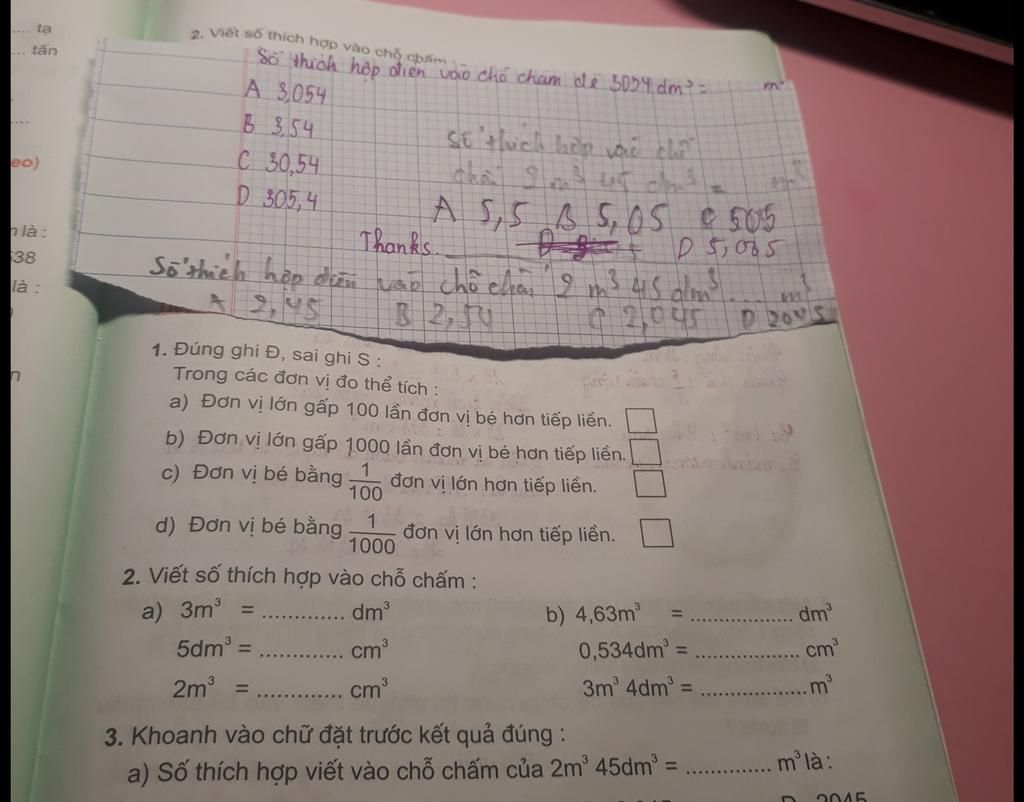 .... tạ
... tấn
....
eo)
n là :
38
là :
n
2. Viết số thích hợp vào chỗ chấm
Số thích hợp điền vào chỗ chấm để 3054 dm³ = m³
A 3,054
B 3,54
C 30,54
D 305,4
Số thích hợp vào chỗ
chấm 2 m³ 45 dm³ = m³
A 5,5 B 5,05 C 505
Thanks. D 5,065
Số thích hợp điền vào chỗ chấm 2 m³ 45 dm³ ... m³
A 2,45 B 2,54 C 2,045 D 2045
1. Đúng ghi Đ, sai ghi S :
Trong các đơn vị đo thể tích :
a) Đơn vị lớn gấp 100 lần đơn vị bé hơn tiếp liền.
b) Đơn vị lớn gấp 1000 lần đơn vị bé hơn tiếp liền.
c) Đơn vị bé bằng 1/100 đơn vị lớn hơn tiếp liền.
d) Đơn vị bé bằng 1/1000 đơn vị lớn hơn tiếp liền.
2. Viết số thích hợp vào chỗ chấm :
a) 3m³ = ............. dm³ b) 4,63m³ = .................. dm³
5dm³ = ............. cm³ 0,534dm³ = .................. cm³
2m³ = ............. cm³ 3m³ 4dm³ = ..................m³
3. Khoanh vào chữ đặt trước kết quả đúng :
a) Số thích hợp viết vào chỗ chấm của 2m³ 45dm³ = .............. m³ là:
D. 2045